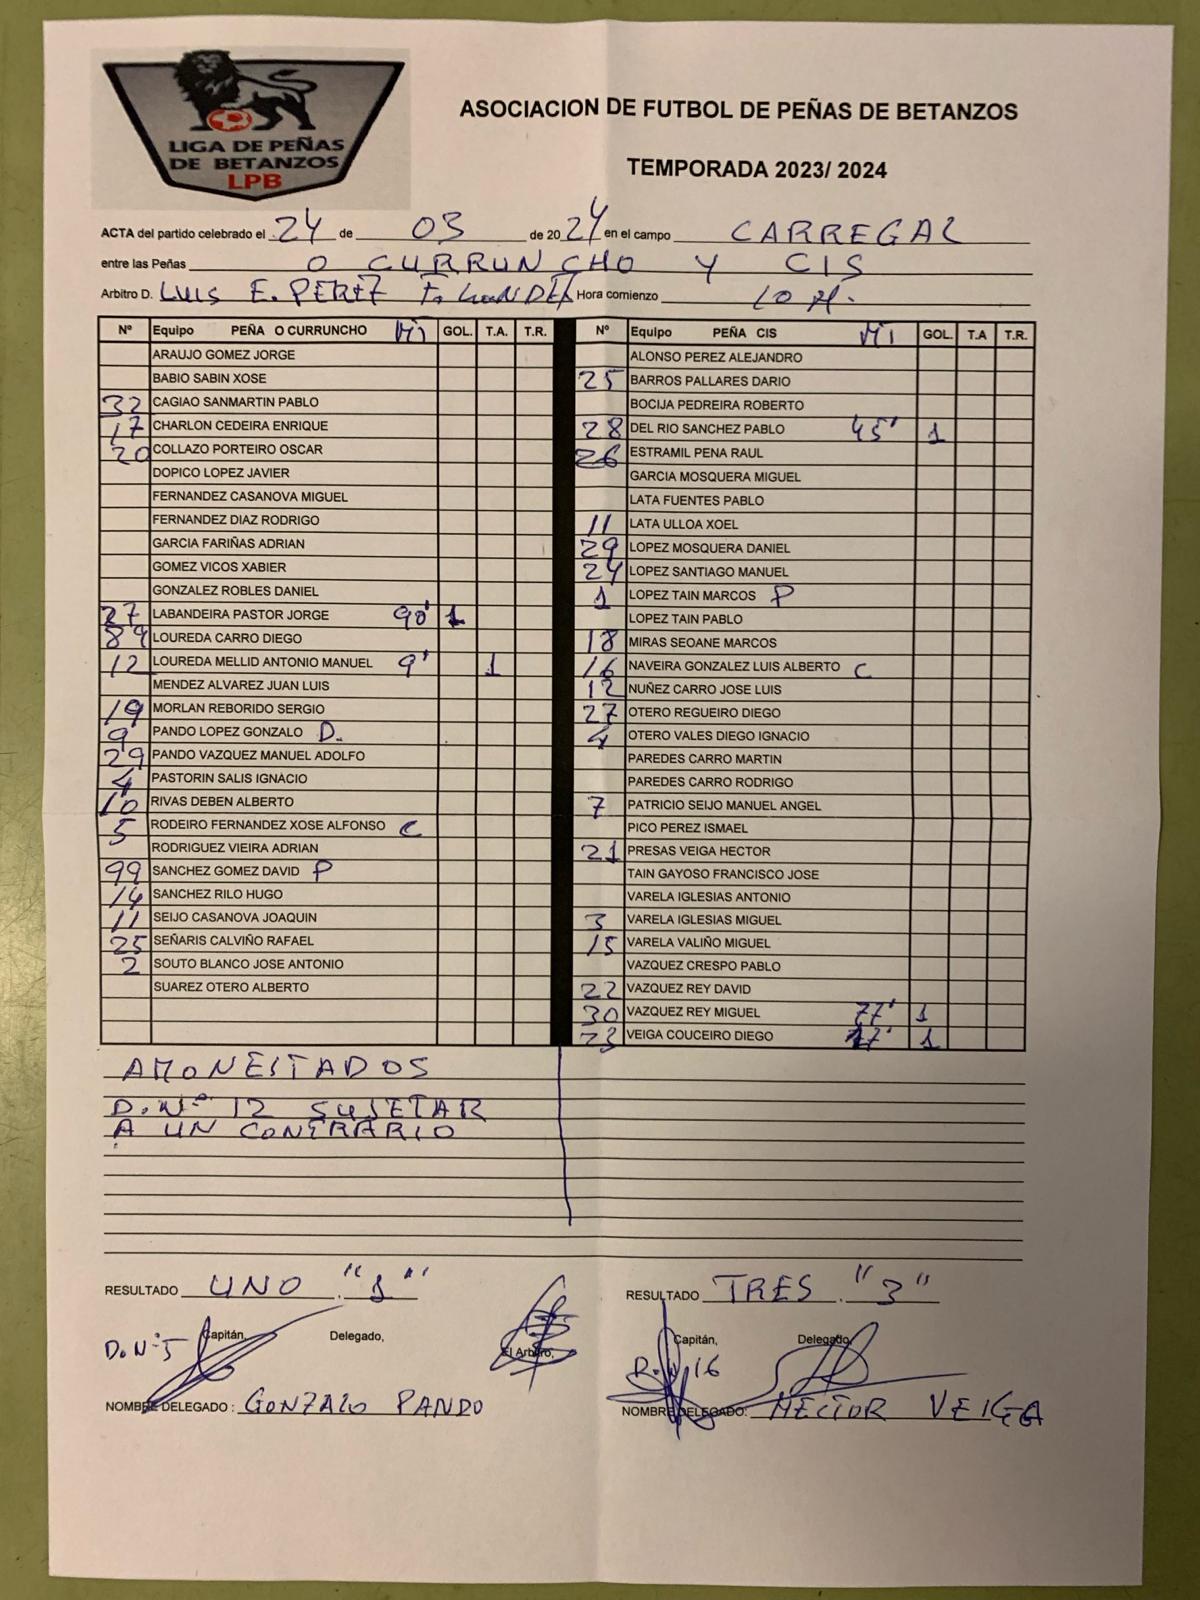 LIGA DE PEÑAS
DE BETANZOS
LPB
ASOCIACION DE FUTBOL DE PEÑAS DE BETANZOS
TEMPORADA 2023/ 2024
ACTA del partido celebrado el 24 de 03 de 2024 en el campo CARREGAL
entre las Peñas O CURRUNCHO Y CIS
Arbitro D. LUIS E. PEREZ Hora comienzo 10 H.
Nº Equipo PEÑA O CURRUNCHO Mi GOL. T.A. T.R. Nº Equipo PEÑA CIS Mi GOL. T.A T.R.
ARAUJO GOMEZ JORGE ALONSO PEREZ ALEJANDRO
BABIO SABIN XOSE 25 BARROS PALLARES DARIO
32 CAGIAO SANMARTIN PABLO BOCIJA PEDREIRA ROBERTO
17 CHARLON CEDEIRA ENRIQUE 28 DEL RIO SANCHEZ PABLO 45' 1
20 COLLAZO PORTEIRO OSCAR 26 ESTRAMIL PENA RAUL
DOPICO LOPEZ JAVIER GARCIA MOSQUERA MIGUEL
FERNANDEZ CASANOVA MIGUEL LATA FUENTES PABLO
FERNANDEZ DIAZ RODRIGO 11 LATA ULLOA XOEL
GARCIA FARIÑAS ADRIAN 29 LOPEZ MOSQUERA DANIEL
GOMEZ VICOS XABIER 24 LOPEZ SANTIAGO MANUEL
GONZALEZ ROBLES DANIEL 1 LOPEZ TAIN MARCOS P
27 LABANDEIRA PASTOR JORGE 90' 1 LOPEZ TAIN PABLO
89 LOUREDA CARRO DIEGO 18 MIRAS SEOANE MARCOS
12 LOUREDA MELLID ANTONIO MANUEL 9' 1 16 NAVEIRA GONZALEZ LUIS ALBERTO C
MENDEZ ALVAREZ JUAN LUIS 12 NUÑEZ CARRO JOSE LUIS
19 MORLAN REBORIDO SERGIO 27 OTERO REGUEIRO DIEGO
9 PANDO LOPEZ GONZALO D. 4 OTERO VALES DIEGO IGNACIO
29 PANDO VAZQUEZ MANUEL ADOLFO PAREDES CARRO MARTIN
4 PASTORIN SALIS IGNACIO PAREDES CARRO RODRIGO
10 RIVAS DEBEN ALBERTO 7 PATRICIO SEIJO MANUEL ANGEL
5 RODEIRO FERNANDEZ XOSE ALFONSO C PICO PEREZ ISMAEL
RODRIGUEZ VIEIRA ADRIAN 21 PRESAS VEIGA HECTOR
99 SANCHEZ GOMEZ DAVID P TAIN GAYOSO FRANCISCO JOSE
14 SANCHEZ RILO HUGO VARELA IGLESIAS ANTONIO
11 SEIJO CASANOVA JOAQUIN 3 VARELA IGLESIAS MIGUEL
25 SEÑARIS CALVIÑO RAFAEL 15 VARELA VALIÑO MIGUEL
2 SOUTO BLANCO JOSE ANTONIO VAZQUEZ CRESPO PABLO
SUAREZ OTERO ALBERTO 22 VAZQUEZ REY DAVID
30 VAZQUEZ REY MIGUEL 77' 1
23 VEIGA COUCEIRO DIEGO 1
AMONESTADOS
D. Nº 12 SUJETAR
A UN CONTRARIO
RESULTADO UNO "1" RESULTADO TRES "3"
Capitán, Delegado, El Arbitro, Capitán, Delegado,
D. Nº 5 16
NOMBRE DELEGADO: GONZALO PANDO NOMBRE DELEGADO: HECTOR VEIGA